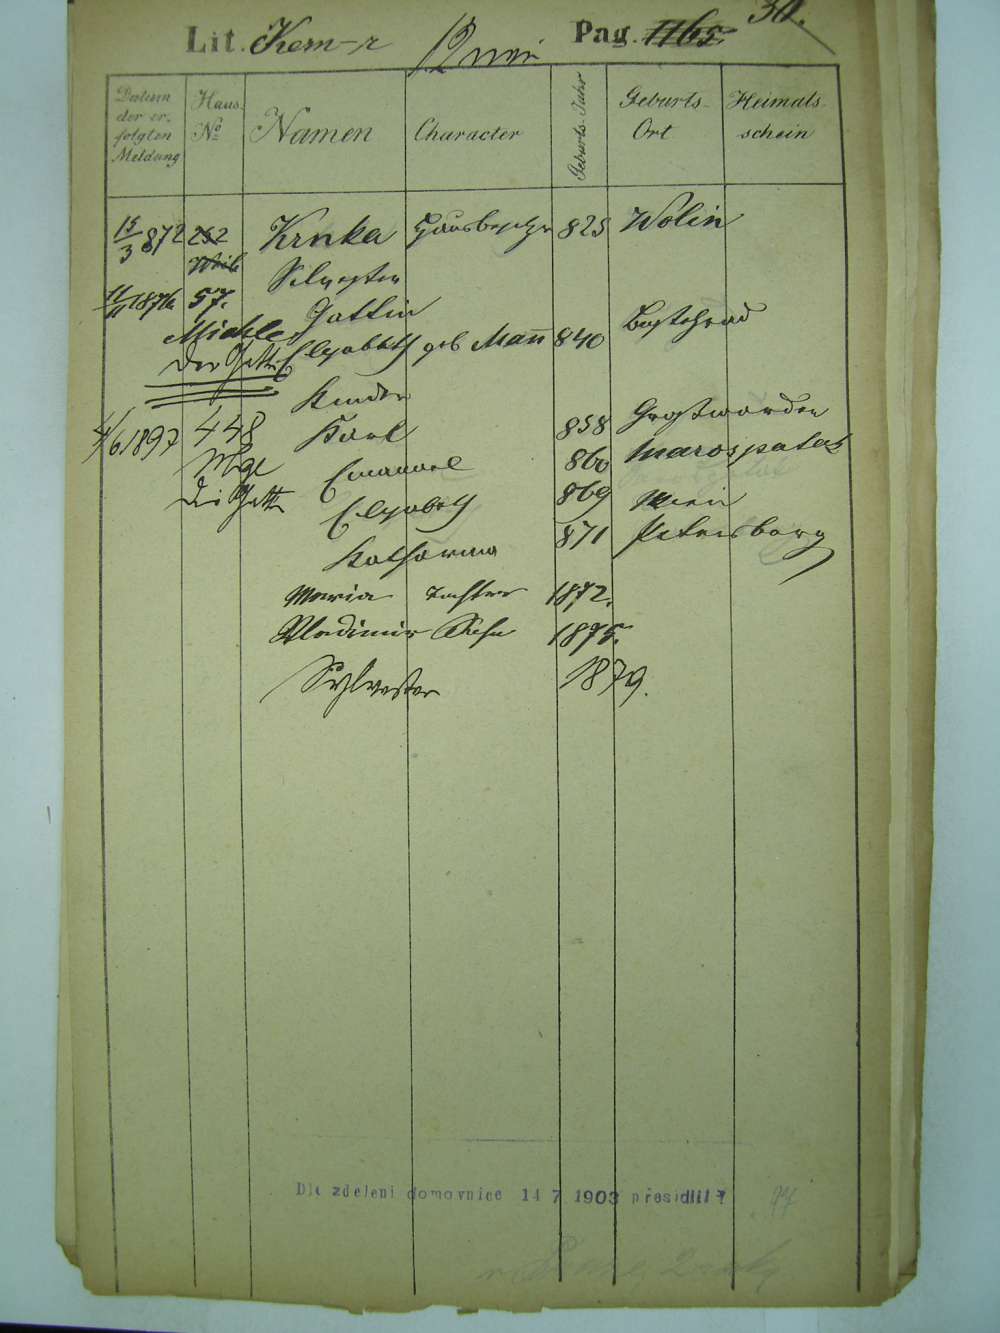 Lit. Kem-r Pag. 1165 30.
Datum der erfolgten Meldung Haus No Namen Character Geburts-Jahr Geburts-Ort Heimats-schein
15/3 872 252 Krnka Hausbesitzer 825 Wolin
Silvester
11/11 1876 57. Gattin
Michle Elisabeth geb Mann 840 Bustehrad
Kinder
4/6 1897 448 Karl 858 Großwardein
Emanuel 860 Marospatak
Elisabeth 869 Wien
Katharina 871 Petersburg
Maria Tochter 1872.
Vladimir Sohn 1875.
Sylvester 1879.
Dle zdělení domovnice 14 7 1903 přesídlil ?